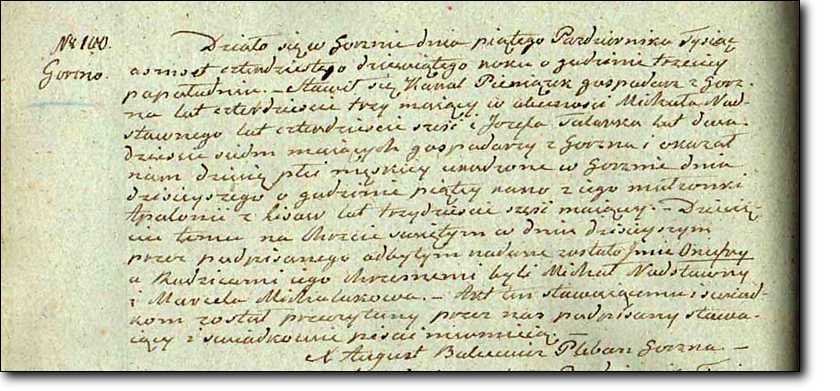 Nr 100.
Gorzno.
Działo się w Gorznie dnia piątego Pazdziernika Tysiąc
osmset czterdziestego dziewiątego roku o godzinie trzeciey
popołudniu. – Stawił się Karol Pieniązek gospodarz z Gorz-
na lat czterdziescie trzy maiący w obecnosci Michała Nad-
stawnego lat czterdziescie szesć i Jozefa Talarka lat dwa-
dziescie siedm maiących gospodarzy z Gorzna i okazał
nam dziecię płci męskiey urodzone w Gorznie dnia
dzisieyszego o godzinie piątey rano z iego małzonki
Apolonii z Lisow lat trzydziescie szesć maiącey. – Dziecię-
ciu temu na Chrzcie swiętym w dniu dzisieyszym
przez podpisanego odbytym nadane zostało Jmie Onufry
a Rodzicami iego chrzesnemi byli Michał Nadstawny
i Marcela Michalakowa. – Akt ten stawaiącemu i swiad-
kom został przeczytany przez nas podpisany stawa-
iący i swiadkowie pisać nieumieią.
X August Pleban Gorzna –